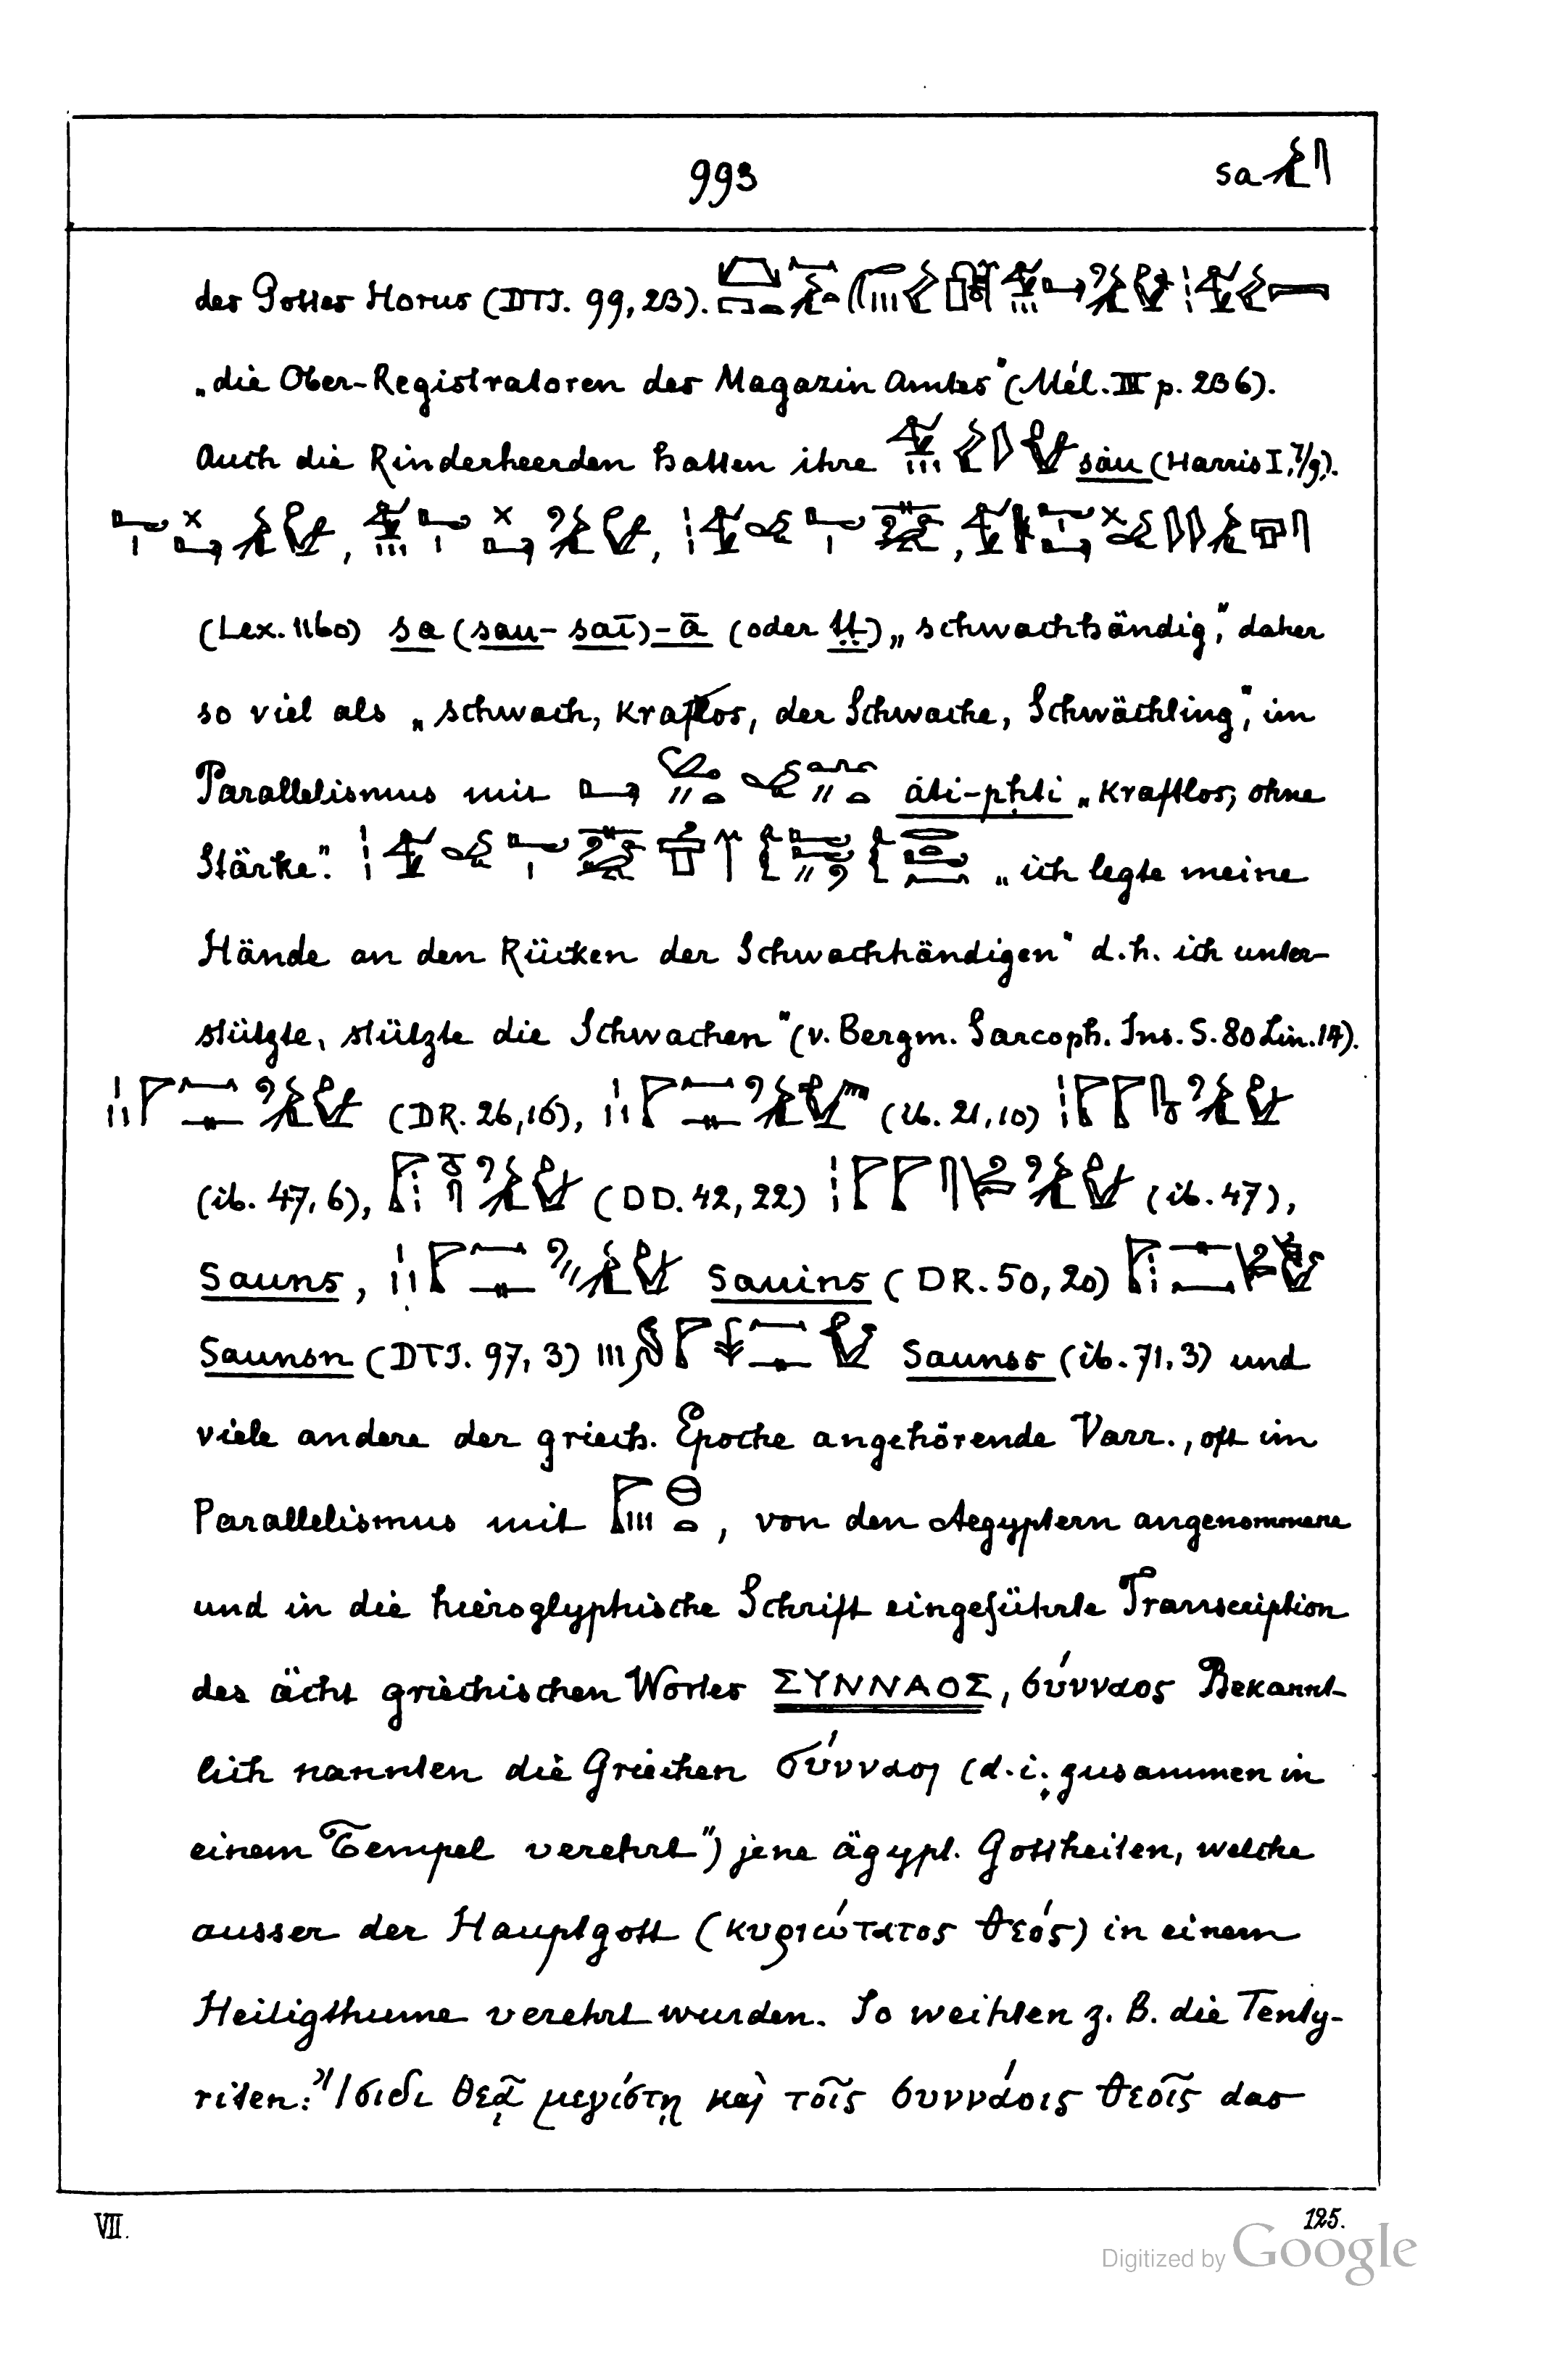 993
sa
des Gottes Horus (DTJ. 99, 23).
„die Ober-Registratoren des Magazin Amtes" (Mél. III p. 236).
Auch die Rinderheerden hatten ihre sáu (Harris I, 7/9).
(Lex. 1160) sa (sau- saī) - ā (oder) „schwachhändig", daher
so viel als „schwach, kraftlos, der Schwache, Schwächling", im
Parallelismus mit áti-pḥti „kraftlos, ohne
Stärke". „ich legte meine
Hände an den Rücken der Schwachhändigen" d. h. ich unter-
stützte, stützte die Schwachen" (v. Bergm. Sarcoph. Ins. S. 80 Lin. 14).
(DR. 26, 16), (ib. 21, 10)
(ib. 47, 6), (DD. 42, 22) (ib. 47),
Sauns, Sauins (DR. 50, 20)
Saunsn (DTJ. 97, 3) Saunss (ib. 71, 3) und
viele andere der griech. Epoche angehörende Varr., oft im
Parallelismus mit , von den Aegyptern angenommene
und in die hieroglyphische Schrift eingeführte Transcription
des ächt griechischen Wortes ΣΥΝΝΑΟΣ, σύνναος Bekannt-
lich nannten die Griechen σύνναοι (d. i. „zusammen in
einem Tempel verehrt") jene ägypt. Gottheiten, welche
ausser der Hauptgott (κυριώτατος θεός) in einem
Heiligthume verehrt wurden. So weihten z. B. die Tenty-
riten: Ἴσιδι θεᾷ μεγίστῃ καὶ τοῖς συννάοις θεοῖς das
VII.
125.
Digitized by Google